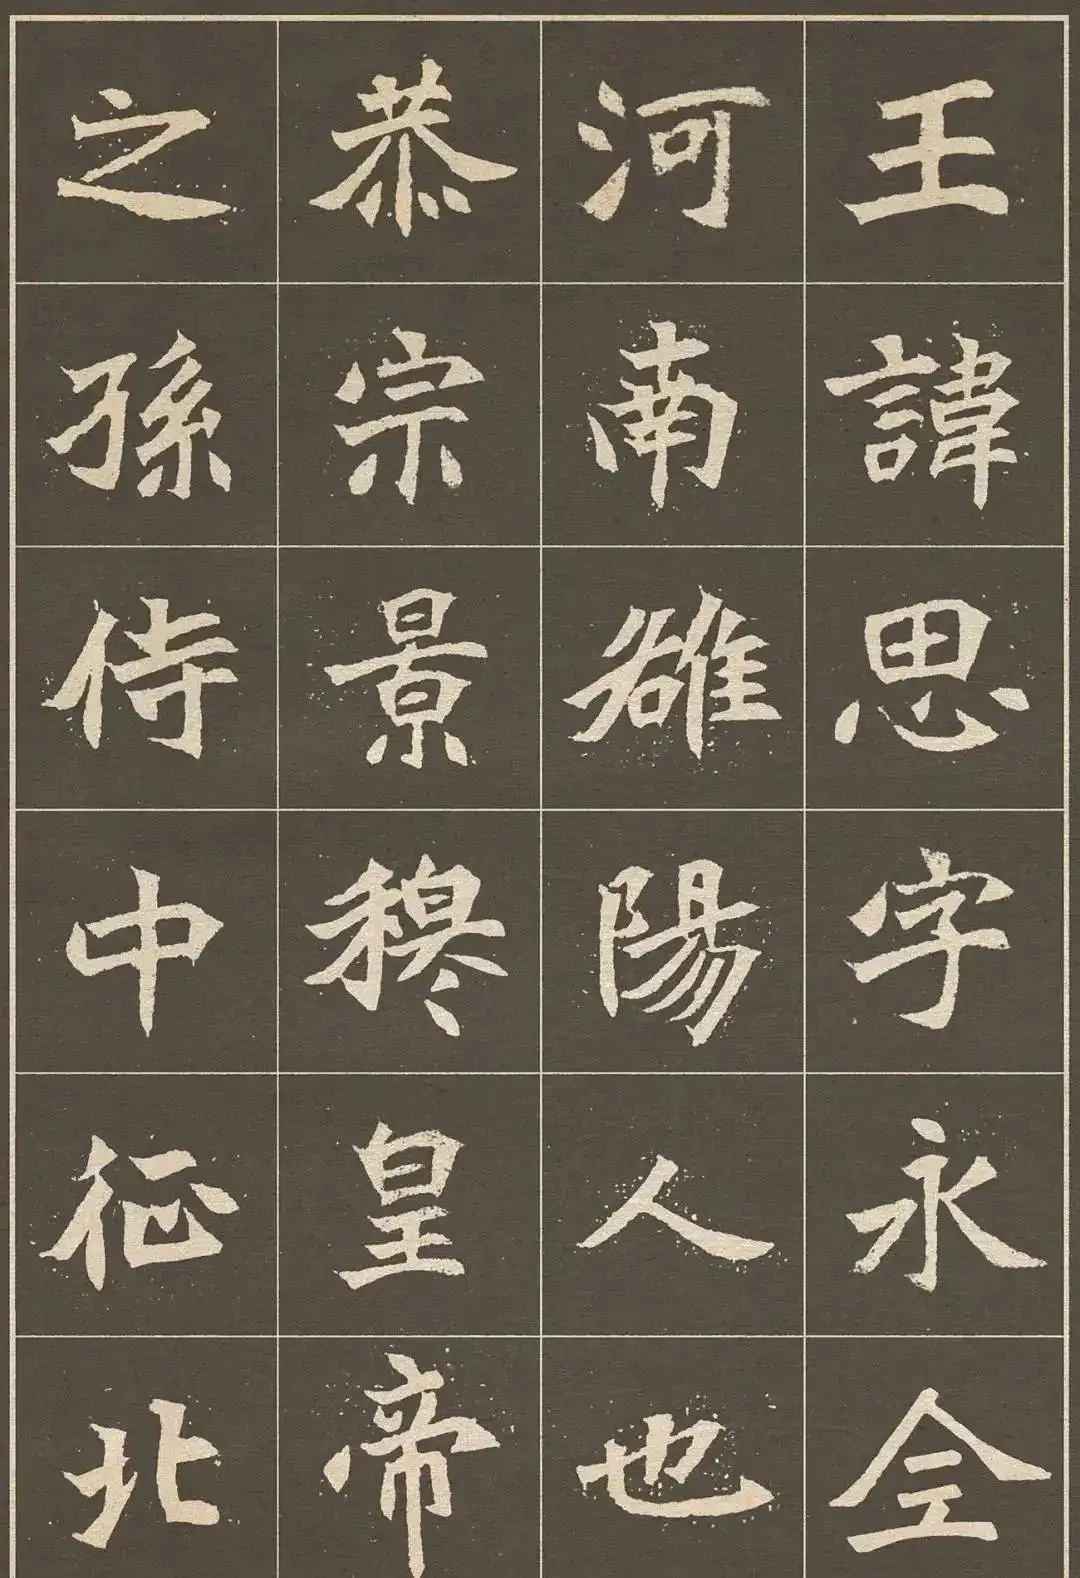 王諱思字永全
河南雒陽人也
恭宗景穆皇帝
之孫侍中征北